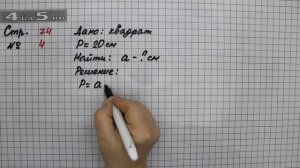 4 на 5.ru
Стр. 74
№ 4
Дано: квадрат
P = 20 см
Найти: a - ? см
Решение:
P = a